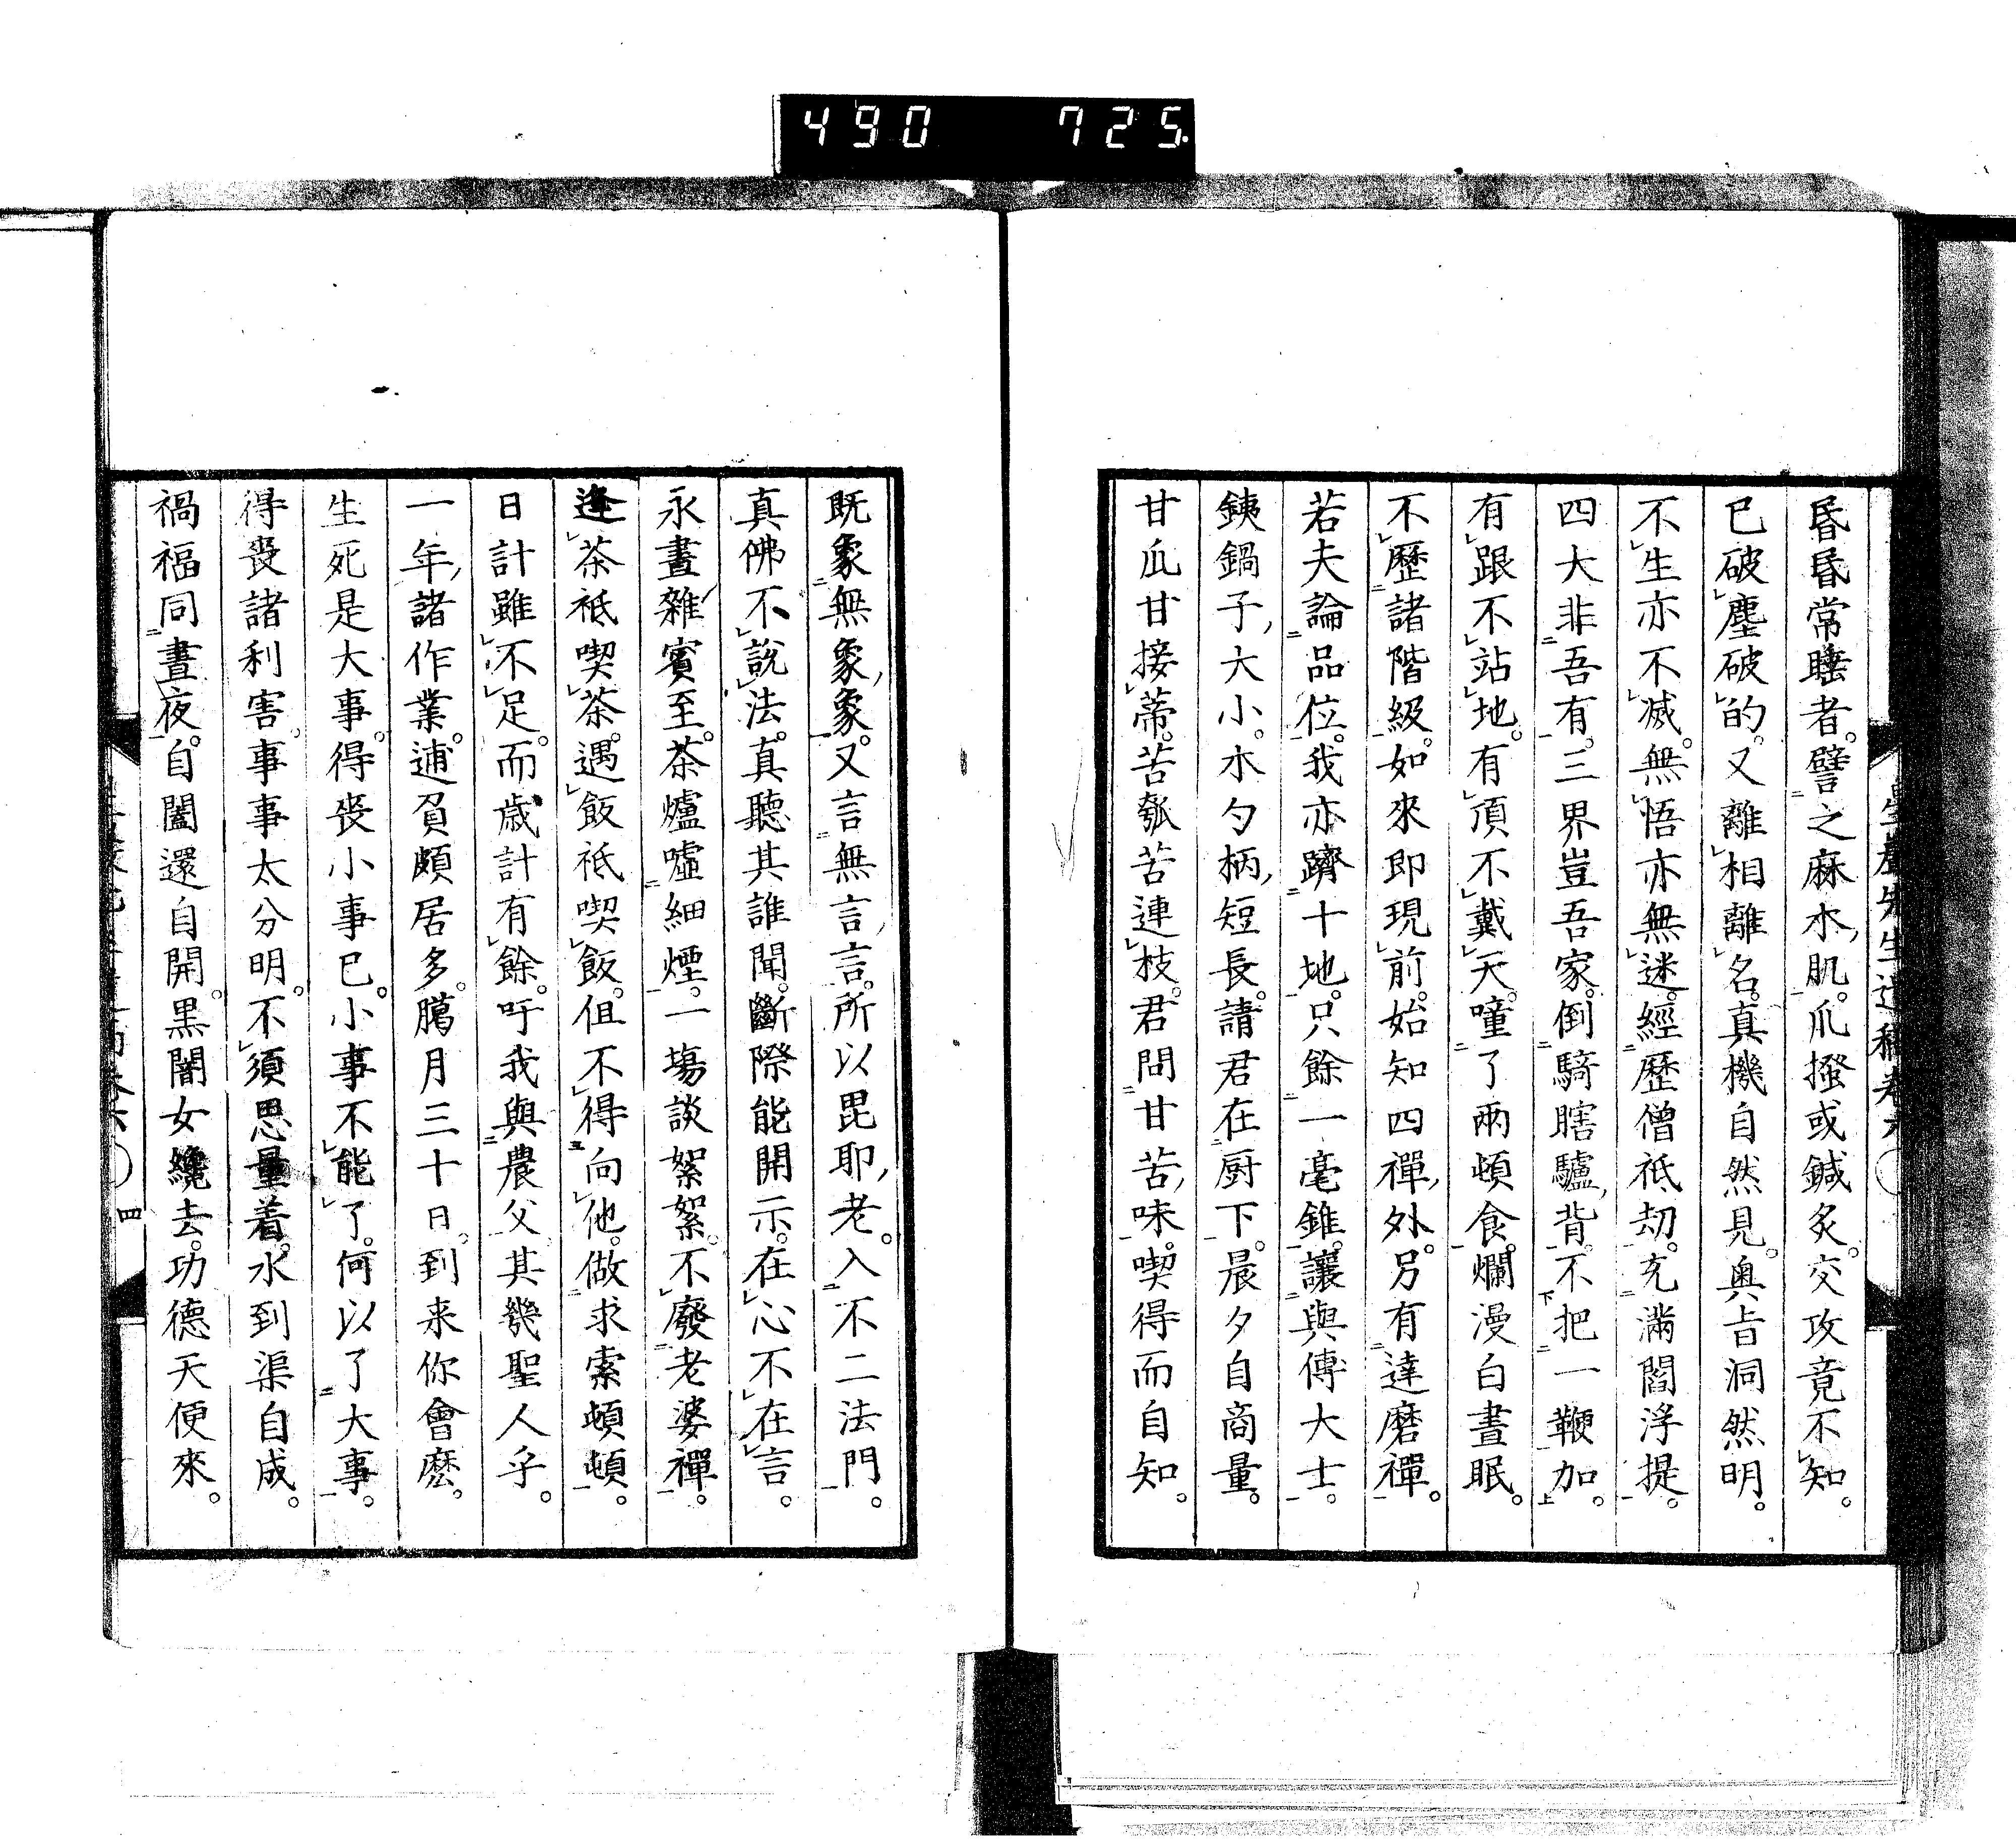 490 725
昏昏常睡者。譬之麻木肌。爪撥或鍼炙。交攻竟不知。
已破塵破的。又離相離名。真機自然見。奥旨洞然明。
不生亦不滅。無悟亦無迷。經歷僧祇劫。充滿閻浮提。
四大非吾有。三界豈吾家。倒騎瞎驢背。不把一鞭加。
有跟不站地。有頂不戴天。噇了兩頓食。爛漫白晝眠。
不歷諸階級。如來即現前。始知四禪外。另有達磨禪。
若夫論品位。我亦躋十地。只餘一毫錐。讓與傅大士。
銕鍋子大小。木勺柄短長。請君在厨下。晨夕自商量。
甘瓜甘接蒂。苦瓠苦連枝。君問甘苦味。喫得而自知。
既象無象象。又言無言言。所以毘耶老。入不二法門。
真佛不說法。真聽其誰聞。斷際能開示。在心不在言。
永晝雜賓至。茶爐噓細煙。一場談絮絮。不廢老婆禪。
逢茶祗喫茶。遇飯祗喫飯。但不得向他。做求索頓頓。
日計雖不足。而歲計有餘。吁我與農父。其幾聖人乎。
一年諸作業。逋負頗居多。臈月三十日。到来你會麽。
生死是大事。得喪小事已。小事不能了。何以了大事。
得喪諸利害。事事太分明。不須思量着。水到渠自成。
禍福同晝夜。自闔還自開。黒闇女纔去。功德天便來。
四